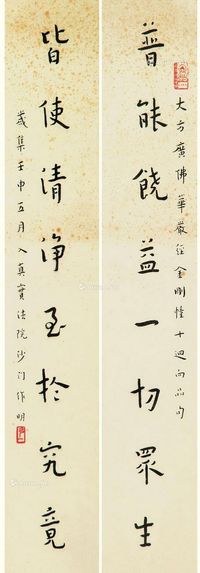 大方廣佛華嚴經金剛幢十迴向品句
普能饒益一切眾生
皆使清淨至於究竟
歲集壬申五月入真寶法院沙門作明